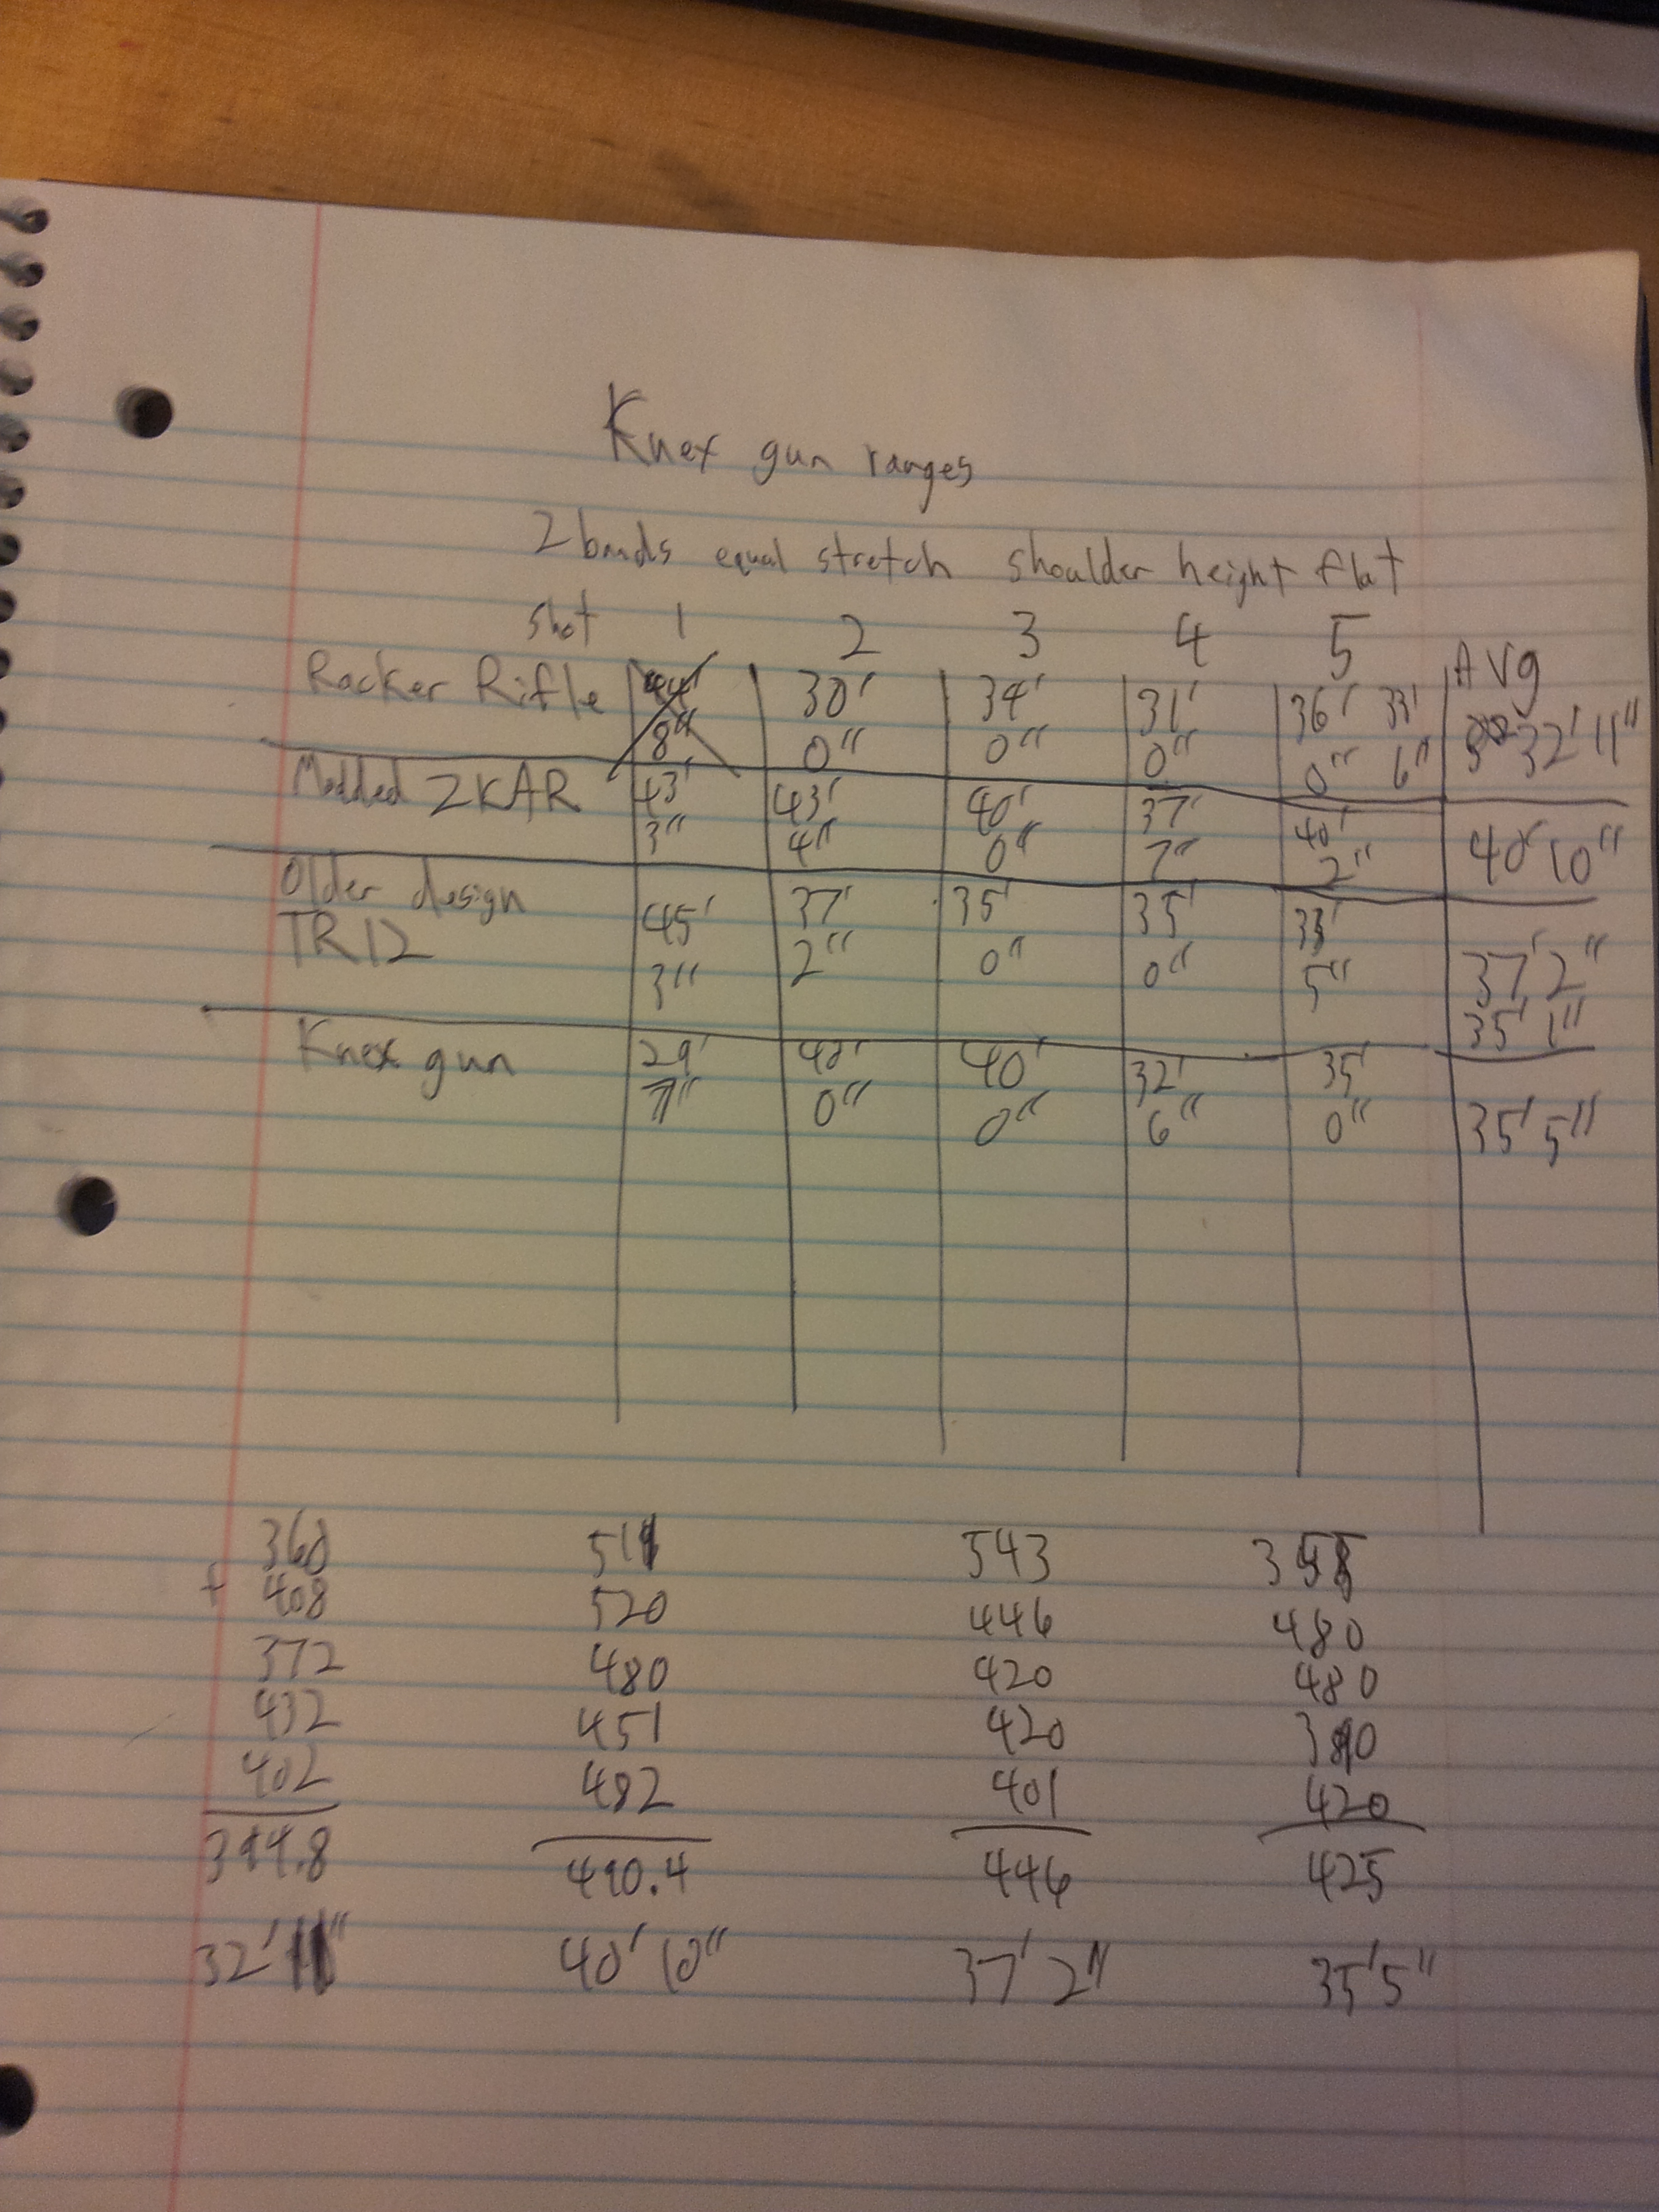 Knex gun ranges
2 bands equal stretch shoulder height flat
shot 1 2 3 4 5 Avg
Rocker Rifle 44' 30' 34' 31' 36' 33' 32' 11"
8" 0" 0" 0" 0" 6"
Modded ZKAR 43' 43' 40' 37' 40' 40' 10"
3" 4" 0" 7" 2"
Older design
TR12 45' 37' 35' 35' 33' 37' 2"
3" 2" 0" 0" 5" 35' 1"
Knex gun 29' 40' 40' 32' 35' 35' 5"
7" 0" 0" 6" 0"
360 519 543 355
+ 408 520 446 480
372 480 420 480
432 451 420 390
402 482 401 420
394.8 490.4 446 425
32' 11" 40' 10" 37' 2" 35' 5"